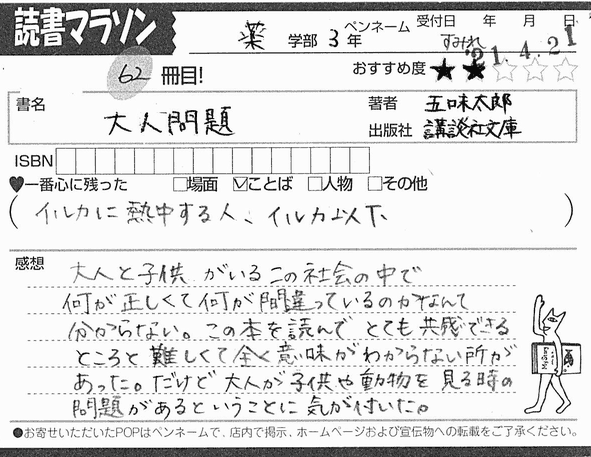 読書マラソン
薬 学部 3年 ペンネーム すみれ 受付日 年 月 日
'21.4.21
62 冊目! おすすめ度 ★★☆☆☆
書名 大人問題
著者 五味太郎
出版社 講談社文庫
ISBN
♥一番心に残った □場面 ☑ことば □人物 □その他
(イルカに熱中する人、イルカ以下、)
感想
大人と子供がいるこの社会の中で
何が正しくて何が間違っているのかなんて
分からない。この本を読んでとても共感できる
ところと難しくて全く意味がわからない所が
あった。だけど大人が子供や動物を見る時の
問題があるということに気が付いた。
●お寄せいただいたPOPはペンネームで、店内で掲示、ホームページおよび宣伝物への転載をご了承ください。